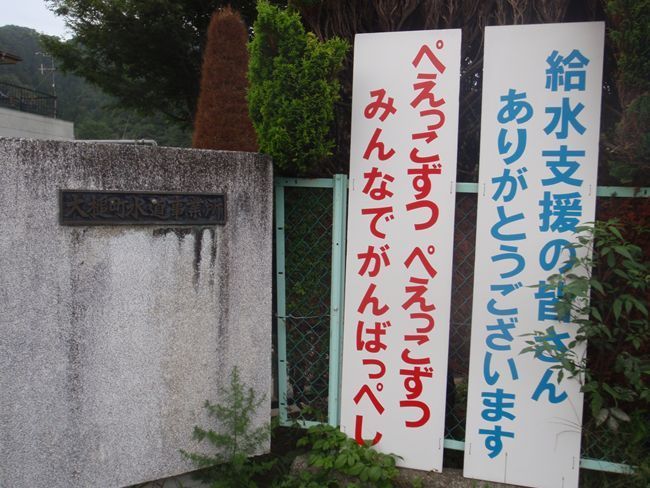 大槌町水道事業所
給水支援の皆さん
ありがとうございます
ぺえっこずつ ぺえっこずつ
みんなでがんばっぺし